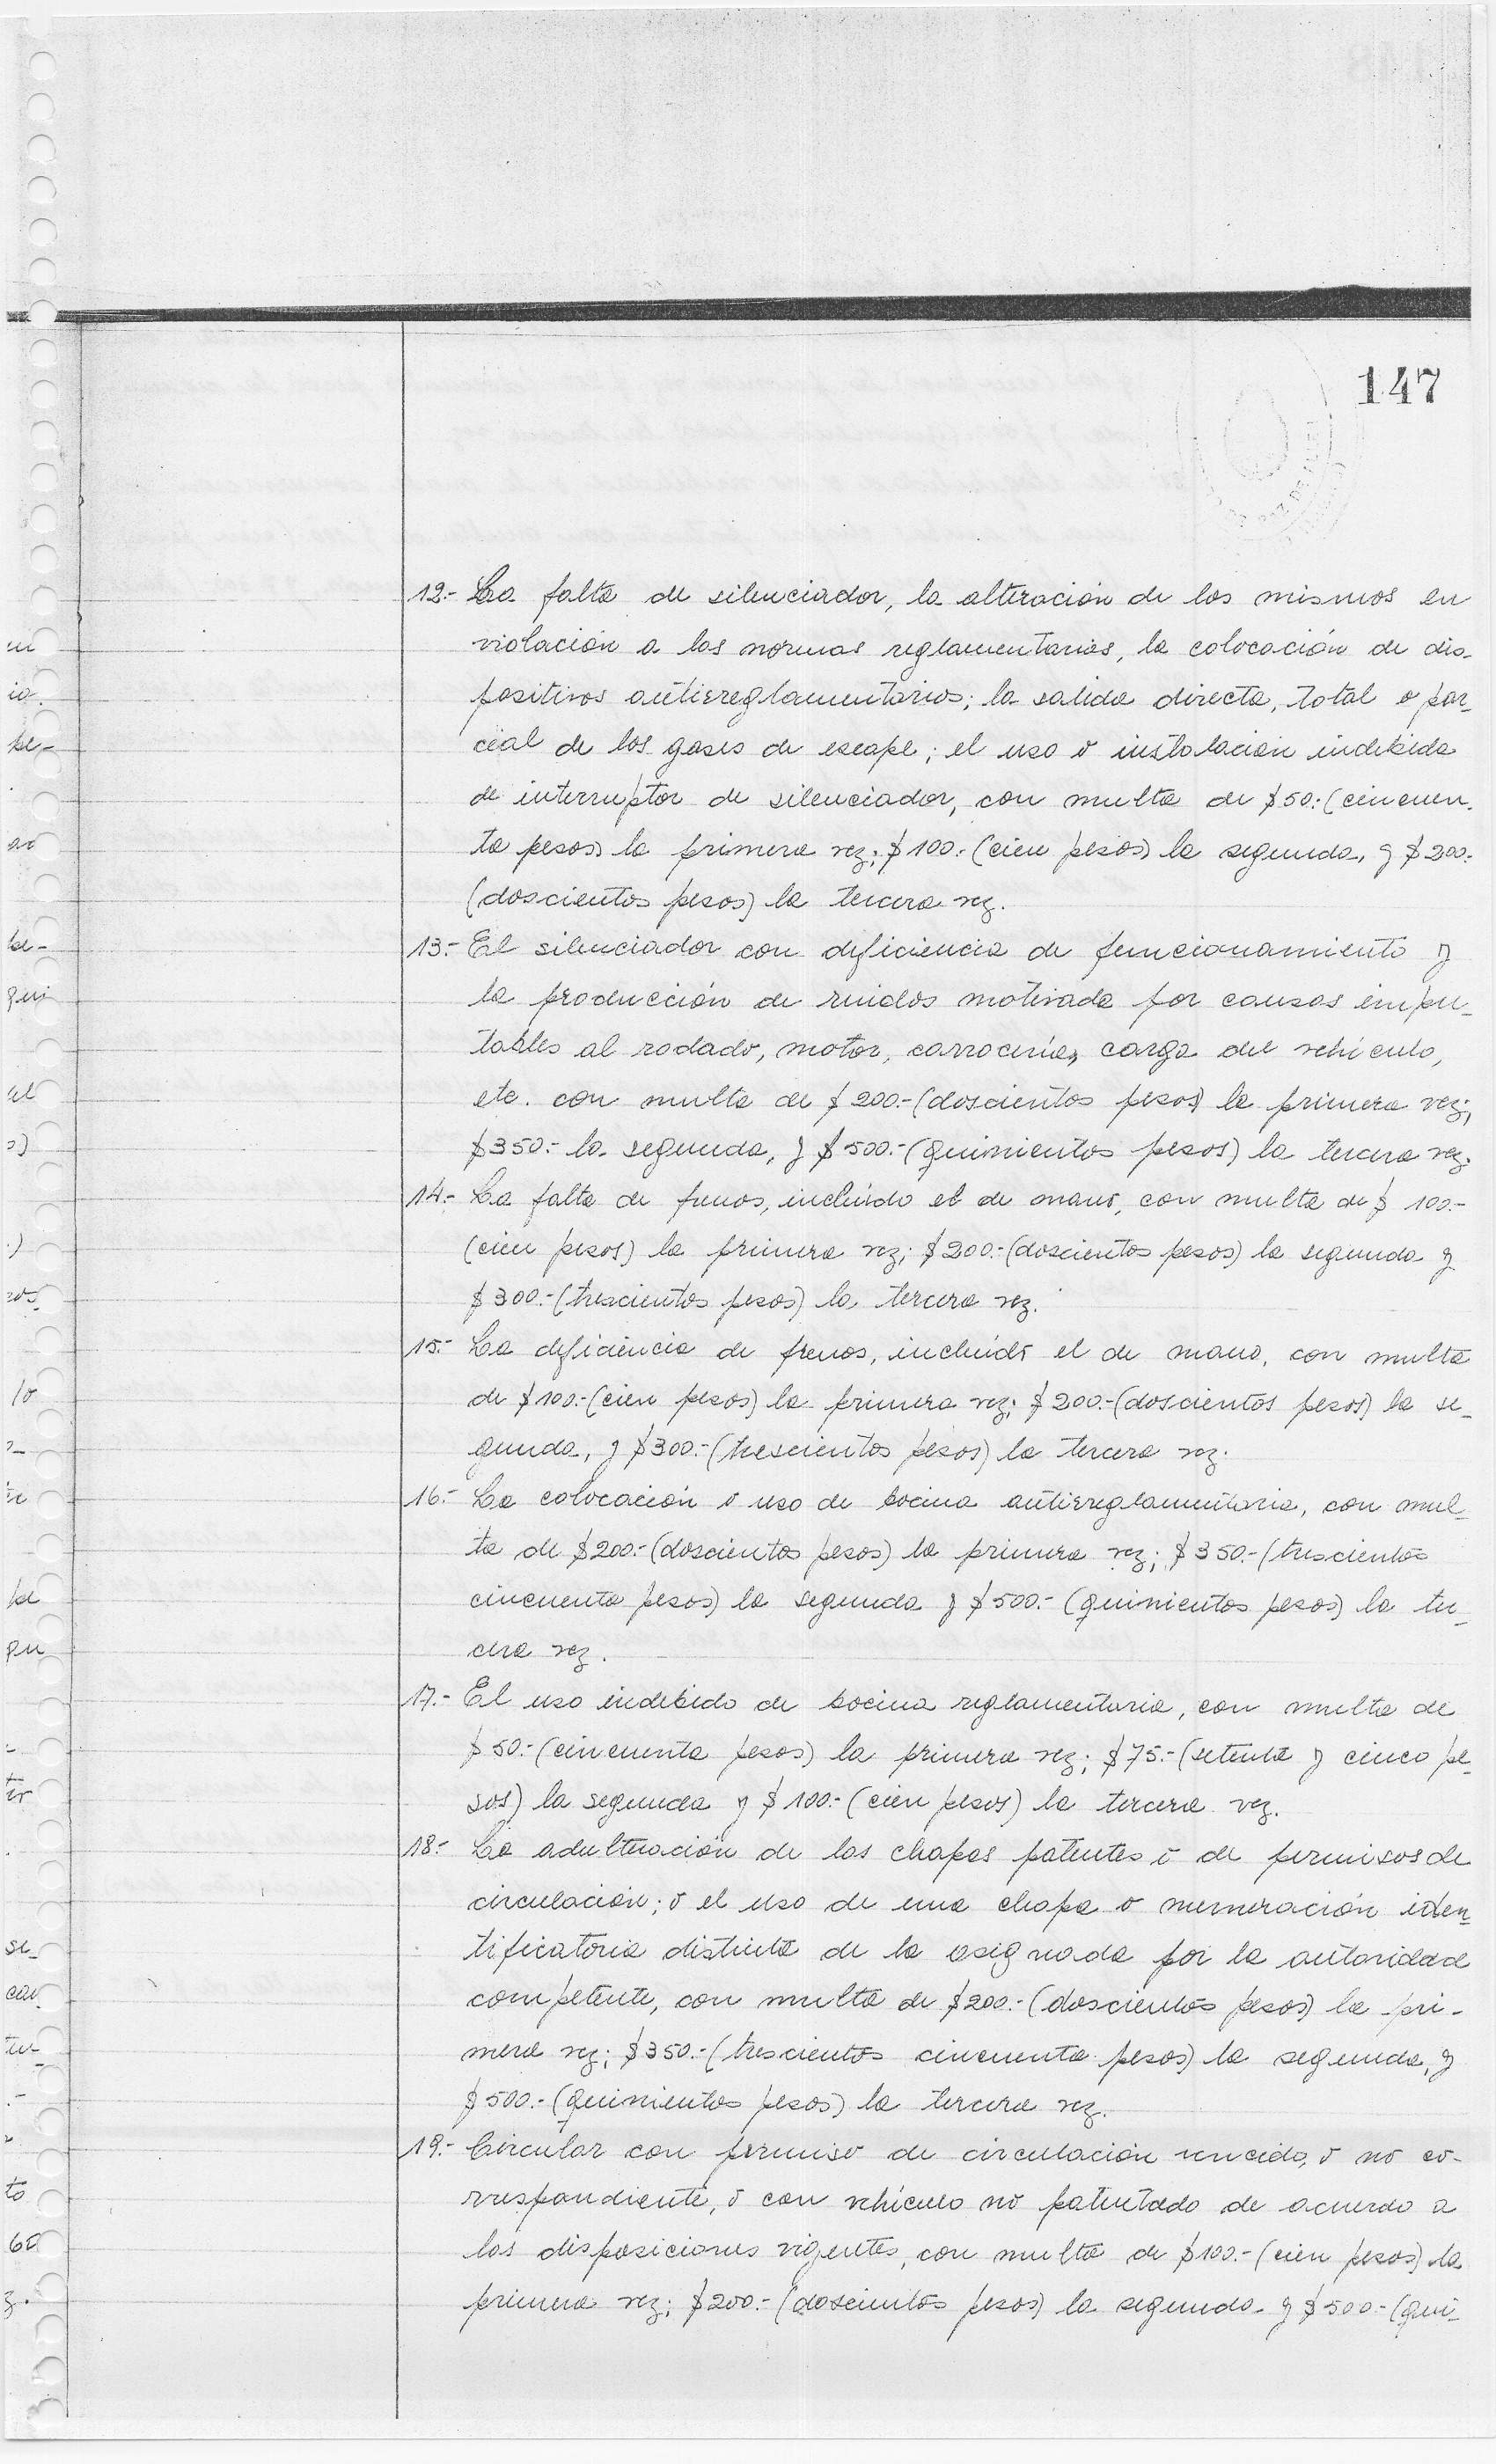 147
12.- La falta de silenciador, la alteración de los mismos en
violación a las normas reglamentarias, la colocación de dis-
positivos antirreglamentarios; la salida directa, total o par-
cial de los gases de escape; el uso o instalación indebida
de interruptor de silenciador, con multa de $50.- (cincuen-
ta pesos) la primera vez; $100.- (cien pesos) la segunda, y $200.-
(doscientos pesos) la tercera vez.
13.- El silenciador con deficiencia de funcionamiento y
la producción de ruidos motivada por causas impu-
tables al rodado, motor, carrocería, carga del vehículo,
etc. con multa de $200.- (doscientos pesos) la primera vez;
$350.- la segunda, y $500.- (quinientos pesos) la tercera vez.
14.- La falta de frenos, incluído el de mano, con multa de $ 100.-
(cien pesos) la primera vez; $200.- (doscientos pesos) la segunda y
$300.- (trescientos pesos) la tercera vez.
15.- La deficiencia de frenos, incluído el de mano, con multa
de $100.- (cien pesos) la primera vez; $200.- (doscientos pesos) la se-
gunda, y $300.- (trescientos pesos) la tercera vez.
16.- La colocación o uso de bocina antirreglamentaria, con mul-
ta de $200.- (doscientos pesos) la primera vez; $350.- (trescientos
cincuenta pesos) la segunda y $500.- (quinientos pesos) la ter-
cera vez.
17.- El uso indebido de bocina reglamentaria, con multa de
$50.- (cincuenta pesos) la primera vez; $75.- (setenta y cinco pe-
sos) la segunda y $100.- (cien pesos) la tercera vez.
18.- La adulteración de las chapas patentes o de permisos de
circulación; o el uso de una chapa o numeración iden-
tificatoria distinta de la asignada por la autoridad
competente, con multa de $200.- (doscientos pesos) la pri-
mera vez; $350.- (trescientos cincuenta pesos) la segunda, y
$500.- (quinientos pesos) la tercera vez.
19.- Circular con permiso de circulación vencido, o no co-
rrespondiente, o con vehículo no patentado de acuerdo a
las disposiciones vigentes, con multa de $100.- (cien pesos) la
primera vez; $200.- (doscientos pesos) la segunda y $500.- (qui-